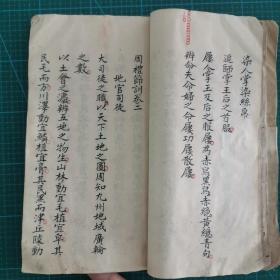 染人掌染絲帛
追師掌王后之首服
屨人掌王及后之服屨為赤舄黑舄赤繶黃繶青句
辨命夫命婦之命屨功屨散屨
周禮節訓卷二
地官司徒
大司徒之職以天下土地之圖周知九州地域廣輪
之數
以土會之灋辨五地之物生山林動宜毛植宜皁其
民毛而方川澤動宜鱗植宜膏其民黑而津丘陵動